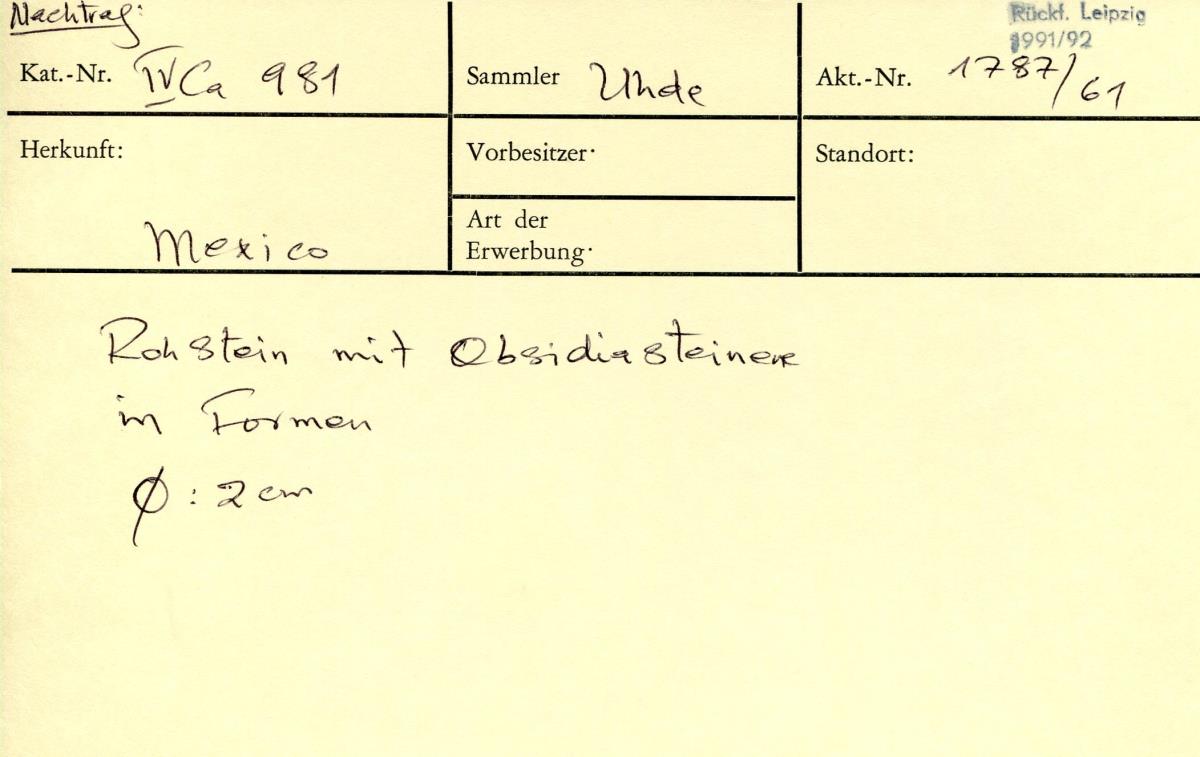 Nachtrag:
Rückf. Leipzig
1991/92
Kat.-Nr. IV Ca 981
Sammler Uhde
Akt.-Nr. 1787/61
Herkunft:
Mexico
Vorbesitzer·
Art der
Erwerbung·
Standort:
Rohstein mit Obsidiasteinen
in Formen
Ø : 2 cm